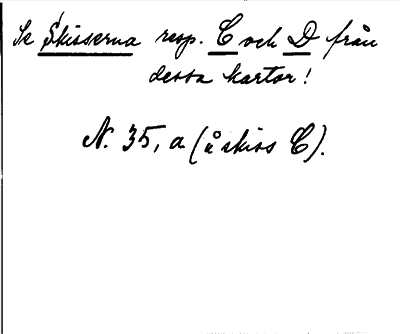 Se Skisserna resp. C och D från
dessa kartor!
N. 35, a (å skiss C).